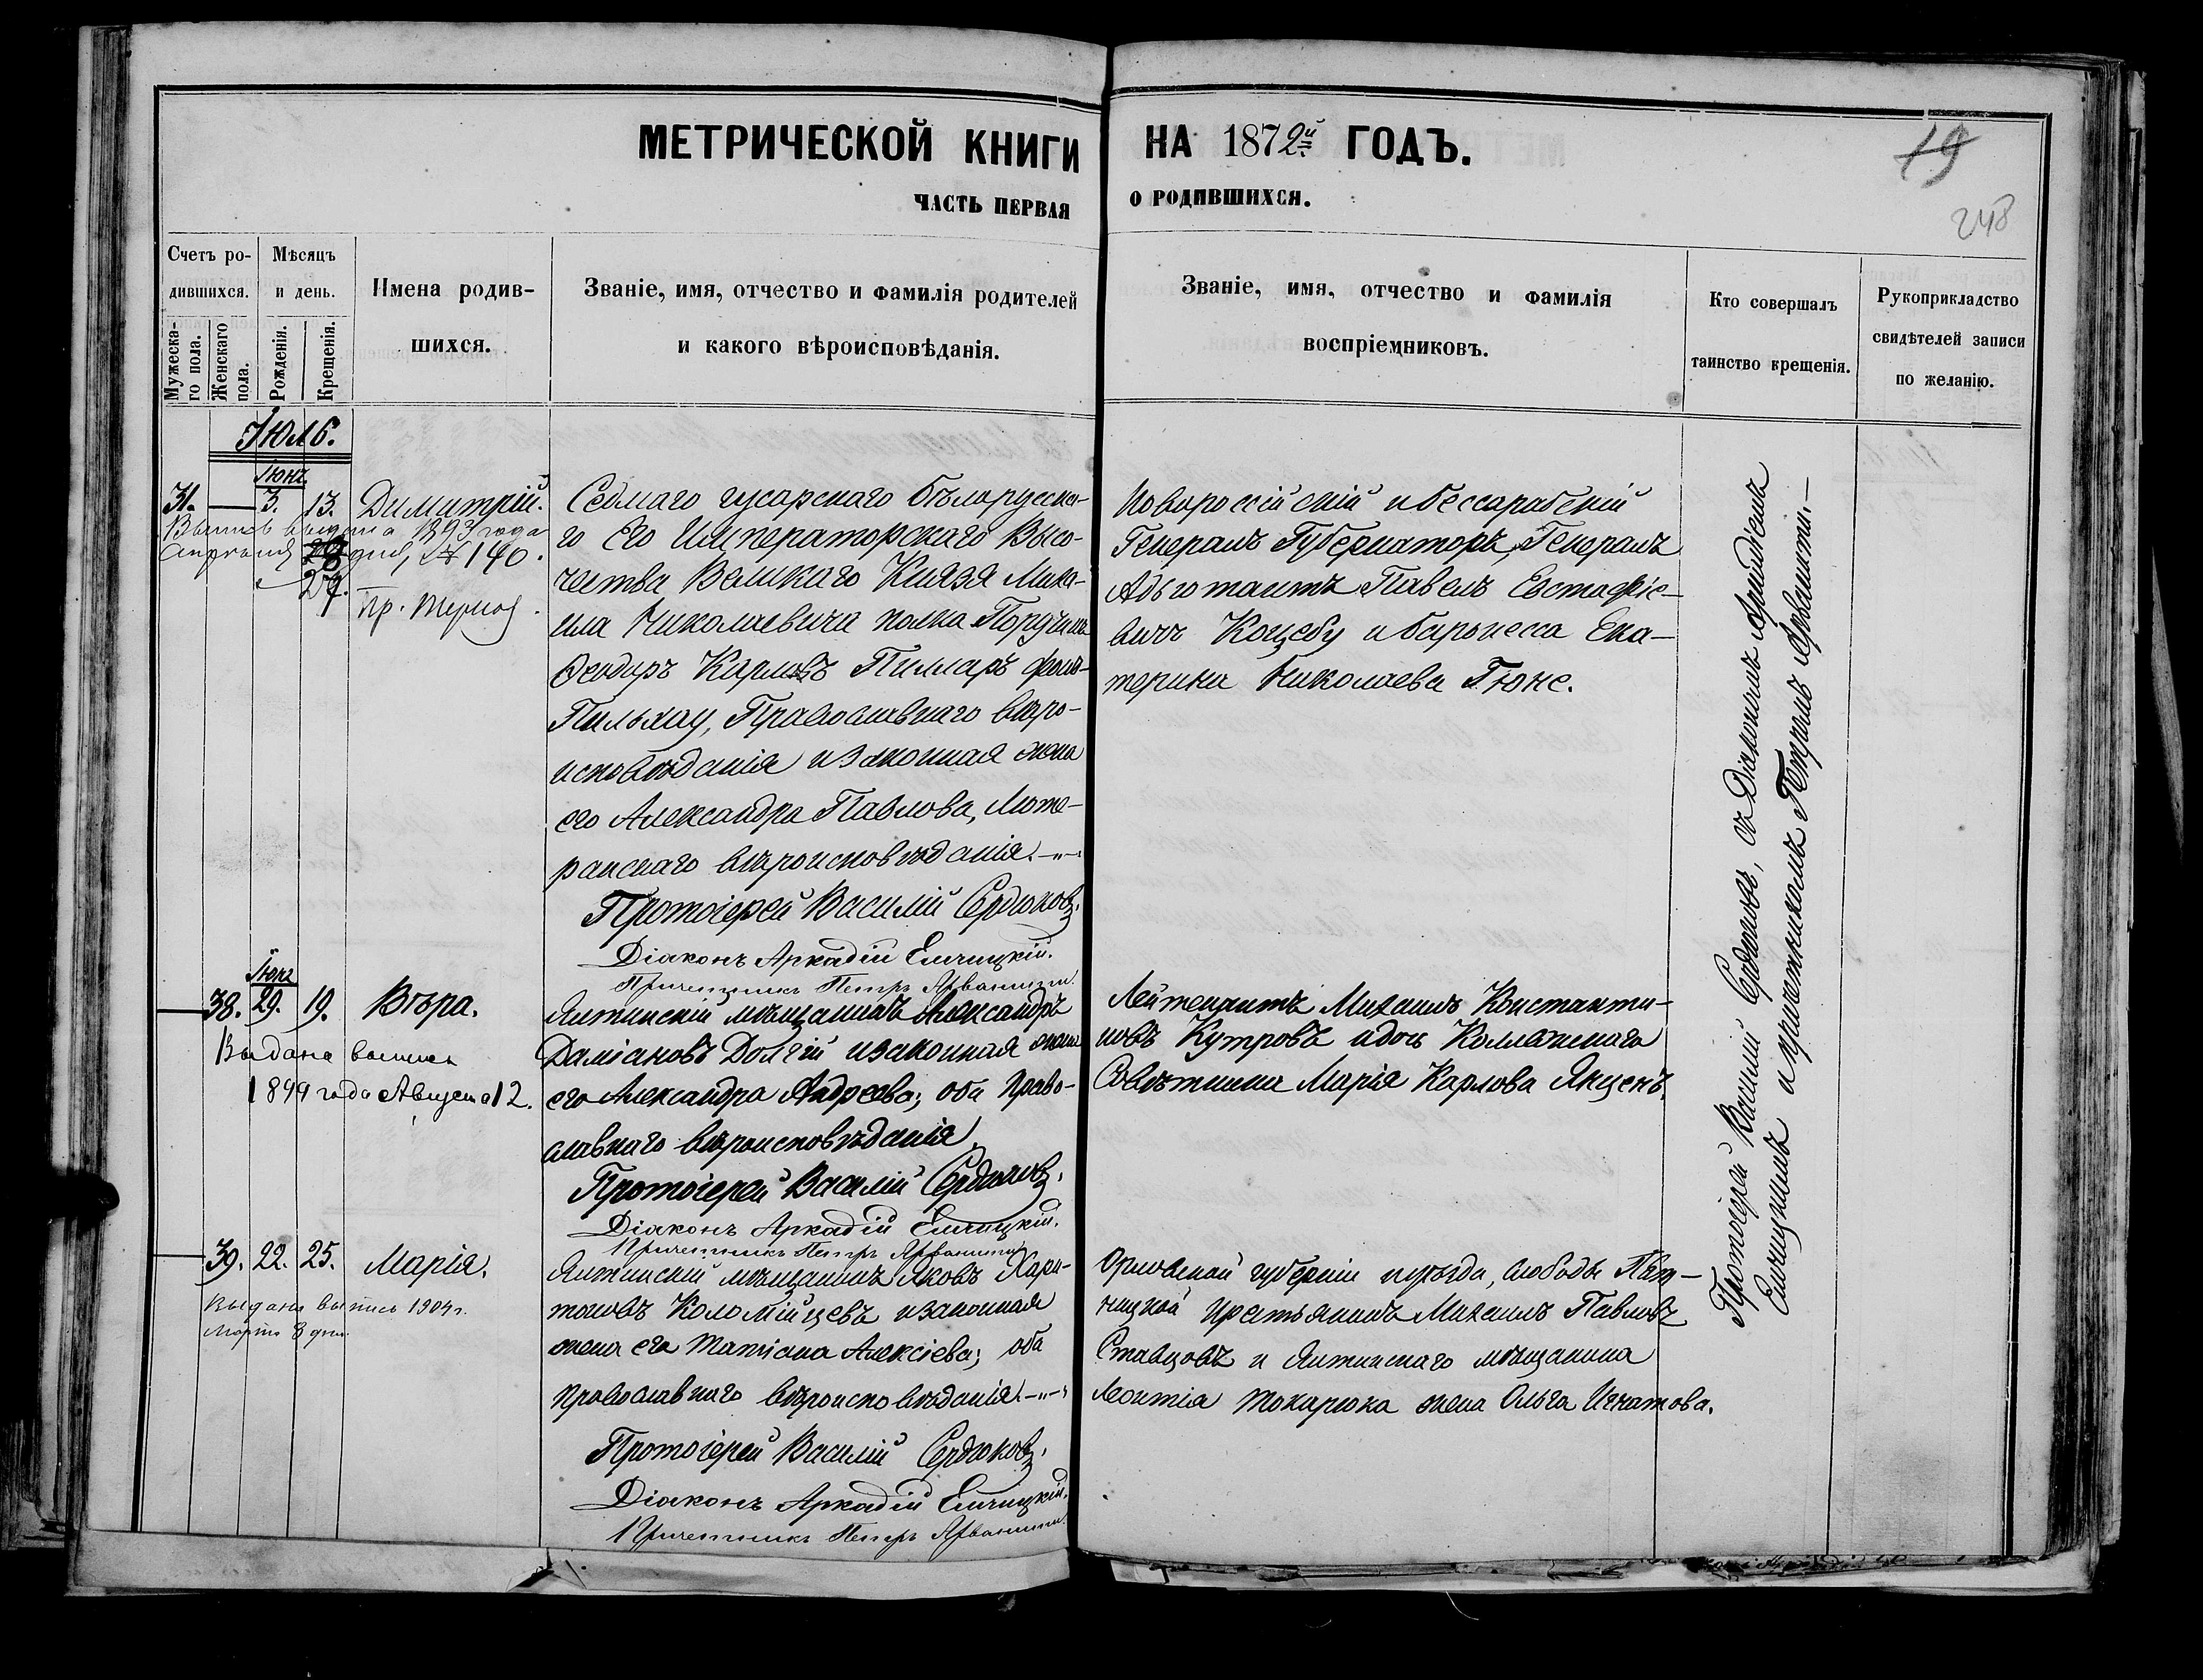 МЕТРИЧЕСКОЙ КНИГИ НА 1872й ГОДЪ.
ЧАСТЬ ПЕРВАЯ О РОДИВШИХСЯ.
19
248
Счетъ ро-
дившихся.
Мужеска-
го пола.
Женскаго
пола.
Мѣсяцъ
и день.
Рожденія.
Крещенія.
Имена родив-
шихся.
Званіе, имя, отчество и фамилія родителей
и какого вѣроисповѣданія.
Званіе, имя, отчество и фамилія
воспріемниковъ.
Кто совершалъ
таинство крещенія.
Рукоприкладство
свидѣтелей записи
по желанію.
Іюль.
Іюнь
31. — 3. 13. Димитрій.
1893 года
Апрѣля дня, № 140.
29.
Седмаго гусарскаго бѣлорусска-
го Его Императорскаго Высо-
чества Великаго Князя Миха-
ила Николаевича полка Поручикъ
Ѳеодоръ Карловъ Пилларъ фонъ-
Пильхау, Православнаго вѣро-
исповѣданія и законная жена
его Александра Павлова, Люте-
ранскаго вѣроисповѣданія.
Протоіерей Василій Сердюковъ.
Діаконъ Аркадій Елчицкій.
Причетникъ Петръ Арванити.
Новороссійскій и бессарабскій
Генералъ Губернаторъ, Генералъ
Адьютантъ Павелъ Евстафіе-
вичъ Коцебу и баронесса Ека-
терина Николаева Гюне.
Іюнь
— 38. 29. 19. Вѣра.
Выдана выпись
1899 года Августа 12.
Ялтинскій мѣщанинъ Александръ
Даміановъ Долгій и законная жена
его Александра Андреева; оба Право-
славнаго вѣроисповѣданія
Протоіерей Василій Сердюковъ.
Діаконъ Аркадій Елчицкій.
Причетникъ Петръ Арванити
Лейтенантъ Михаилъ Константи-
новъ Кутровъ и дочь Коллежскаго
Совѣтника Марія Карлова Янценъ.
— 39. 22. 25. Марія.
Выдана выпись 1904 г.
Марта 8 дня.
Ялтинскій мѣщанинъ Яковъ Хари-
тоновъ Коломійцевъ и законная
жена его Татіана Алексіева; оба
православнаго вѣроисповѣданія.
Протоіерей Василій Сердюковъ.
Діаконъ Аркадій Елчицкій.
Причетникъ Петръ Арванити.
Орловской губерніи и уѣзда, слободы Пят-
ницкой крестьянинъ Михаилъ Павловъ
Ставцовъ и Ялтинскаго мѣщанина
Леонтія Токарюка жена Ольга Игнатова.
Протоіерей Василій Сердюковъ, съ Діакономъ Аркадіемъ
Елчицкимъ и причетникомъ Петромъ Арванити.—